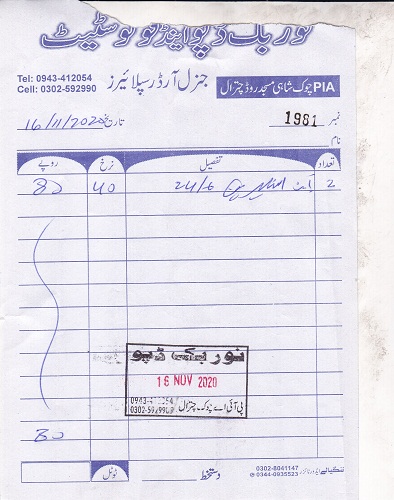 نور بک ڈپو اینڈ فوٹو سٹیٹ
Tel: 0943-412054
Cell: 0302-592990
جنرل آرڈر سپلائیرز
PIA چوک شاہی مسجد روڈ چترال
نمبر 1981
تاریخ 16/11/2020
نام
تعداد تفصیل نرخ روپے
2 24/6 40 80
نور بک ڈپو
16 NOV 2020
پی آئی اے چوک۔ چترال
80
ٹوٹل
دستخط
0302-8041147
0344-0935523